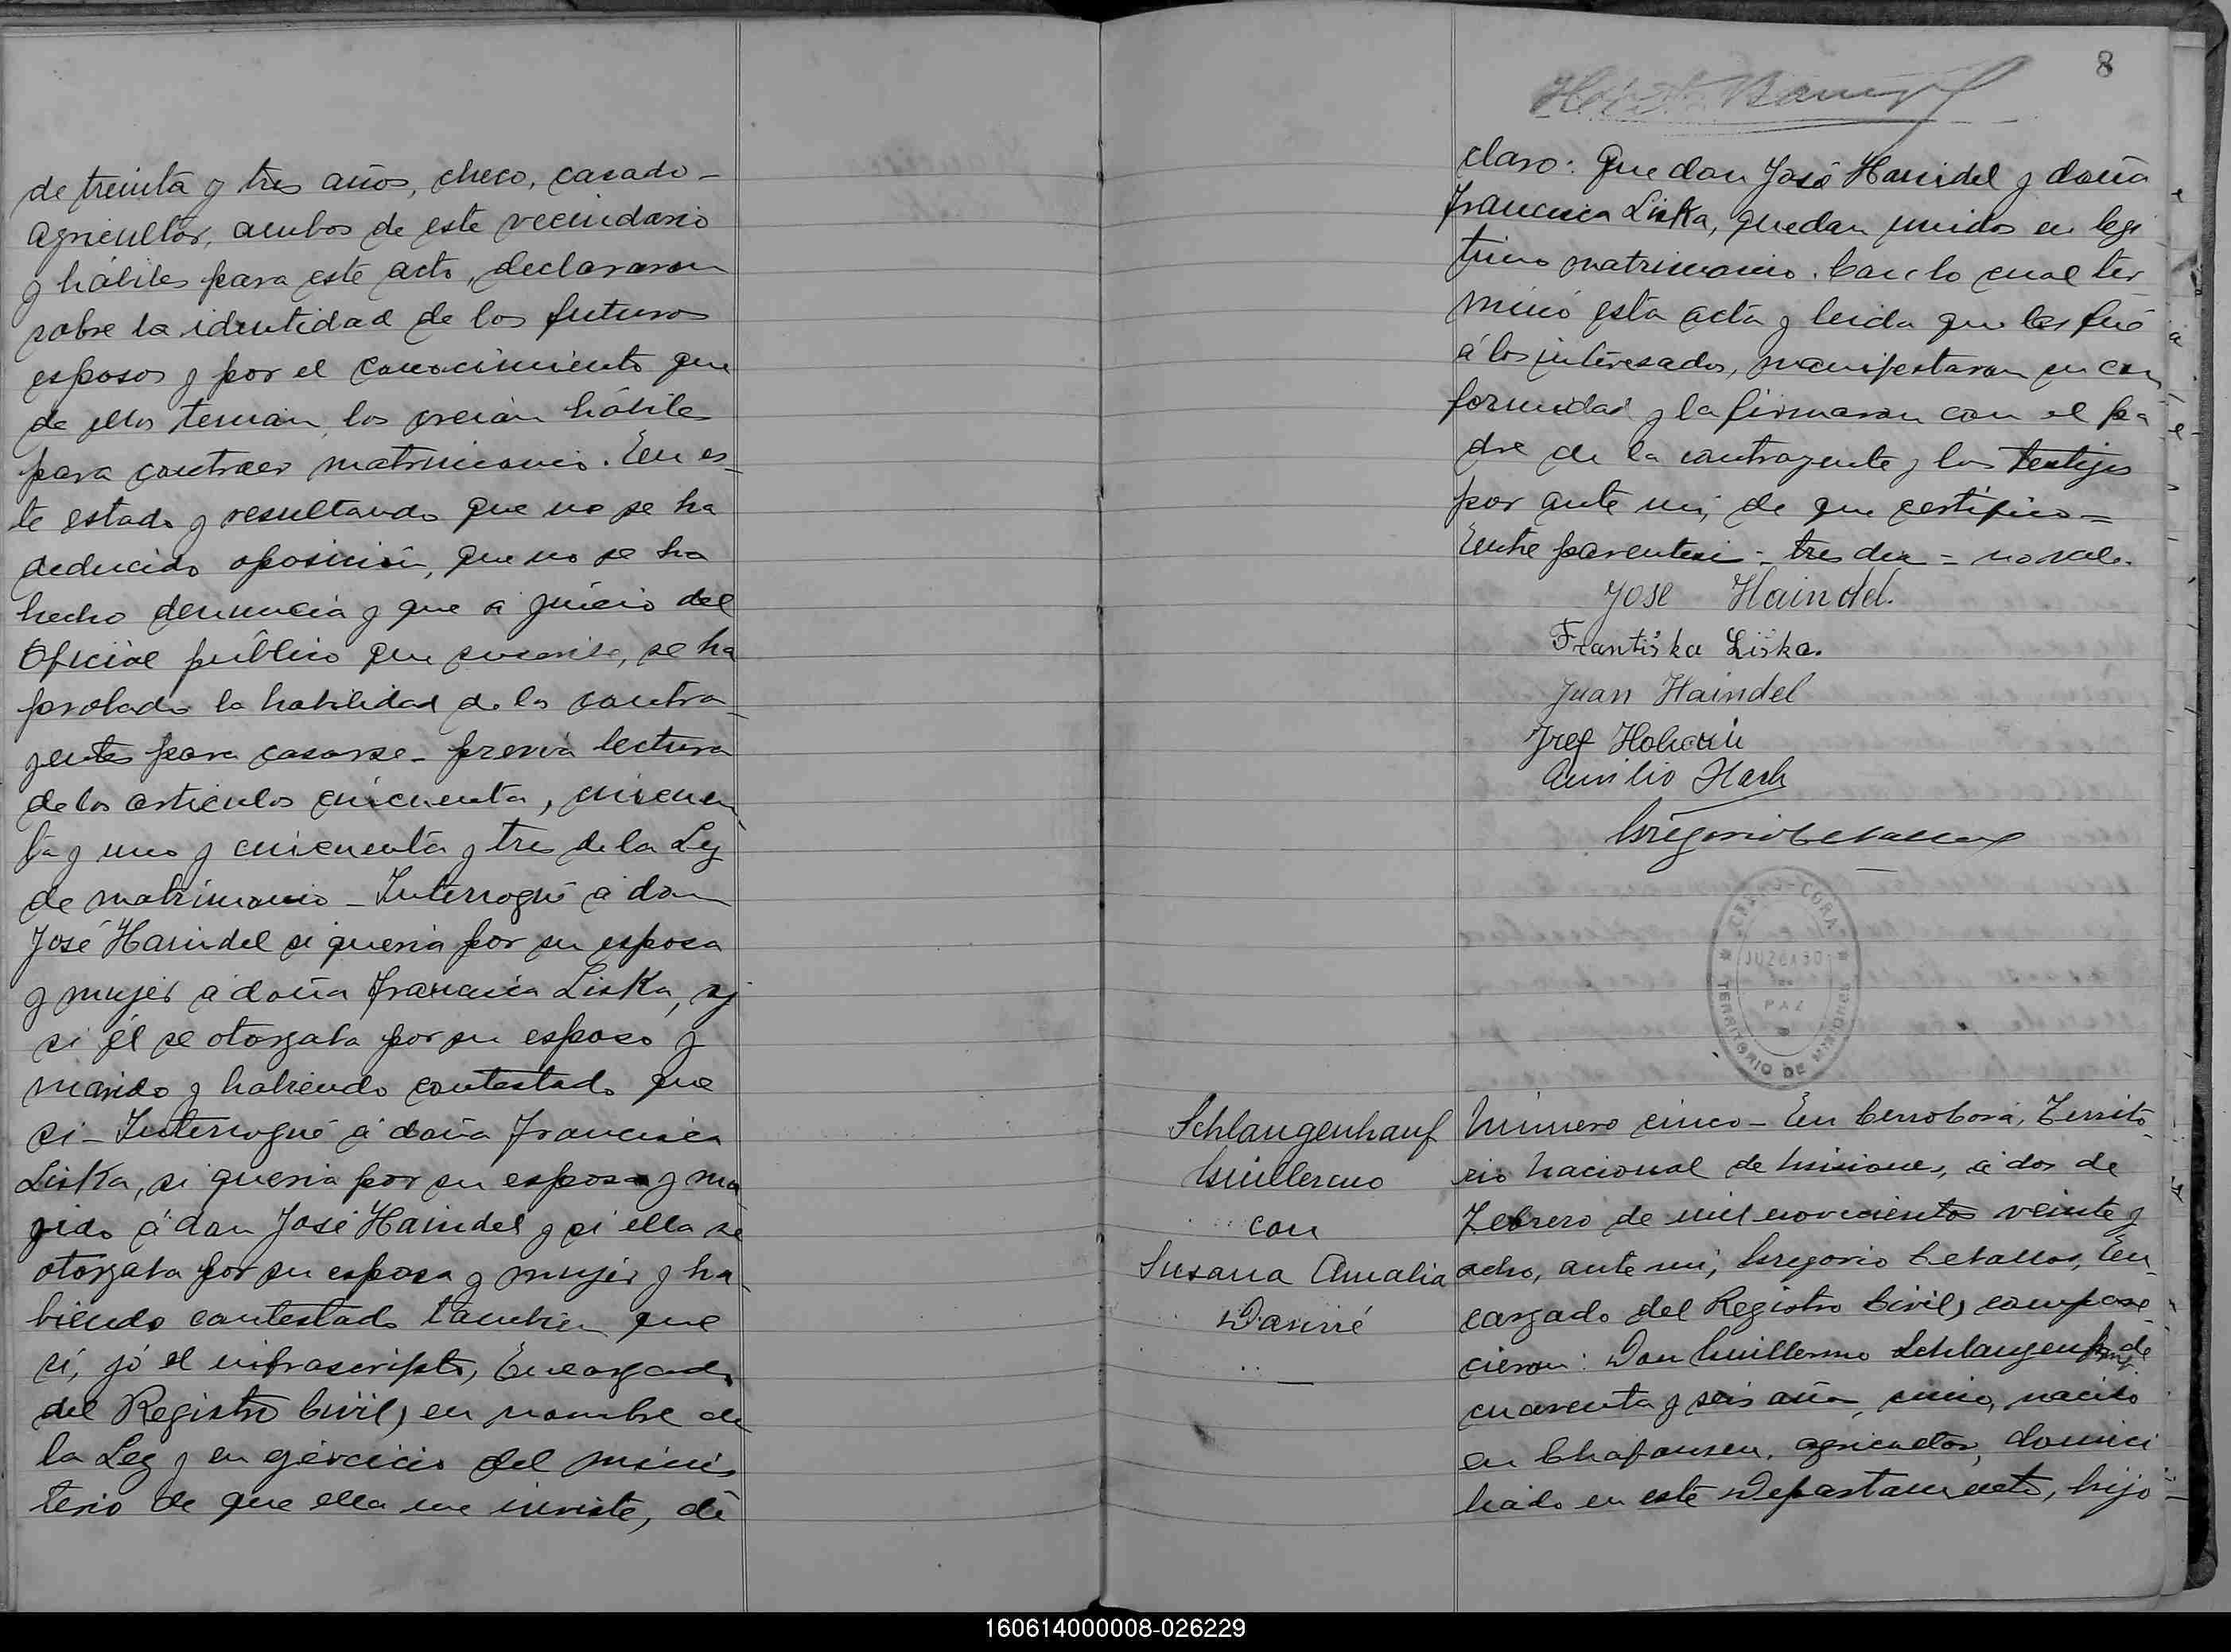 de treinta y tres años, checo, casado -
agricultor, ambos de este vecindario
y hábiles para este acto, declararon
sobre la identidad de los futuros
esposos y por el conocimiento que
de ellos tenian, los creian hábiles
para contraer matrimonio. En es-
te estado y resultando que no se ha
deducido oposición, que no se ha
hecho denuncia y que a juicio del
Oficial público que suscribe, se ha
probado la habilidad de los contra-
yentes para casarse - previa lectura
de los articulos cincuenta, cincuen-
ta y uno y cincuenta y tres de la Ley
de matrimonio - Interrogué a don
José Haindel si queria por su esposa
y mujer a doña Francisca Liska, y
si él se otorgaba por su esposo y
marido y habiendo contestado que
si - Interrogué á doña Francisca
Liska, si queria por su esposo y ma
rido á don José Haindel y si ella se
otorgaba por su esposa y mujer y ha-
biendo contestado tambien que
si, yó el infrascripto, Encargado
del Registro Civil, en nombre de
la Ley y en ejercicio del minis
terio de que ella me inviste, de
8
claro: Que don José Haindel y doña
Francisca Liska, quedan unidos en legi
timo matrimonio. Con lo cual ter
minó esta acta y leida que les fué
á los interesados, manifestaron su con
formidad y la firmaron con el pa
dre de la contrayente y los testigos
por ante mi, de que certifico =
Entre parentesi = tres der = no vale.
José Haindel.
Frantiska Liska.
Juan Haindel
Emilio Hach
Gregorio Ceballos
CERRO-CORA
JUZGADO
DE
PAZ
TERRITORIO DE MISIONES
Schlangenhauf
Guillermo
con
Susana Amalia
Darirré
Número cinco - En Cerro Corá, Territo-
rio Nacional de Misiones, á dos de
Febrero de mil novecientos veinte y
ocho, ante mi, Gregorio Ceballos, En-
cargado del Registro Civil, compare
cieron: Don Guillermo Schlangenhauf de
cuarenta y seis años, suizo, nacido
en Chafausen, agricultor, domici
liado en este Departamento, hijo
160614000008-026229